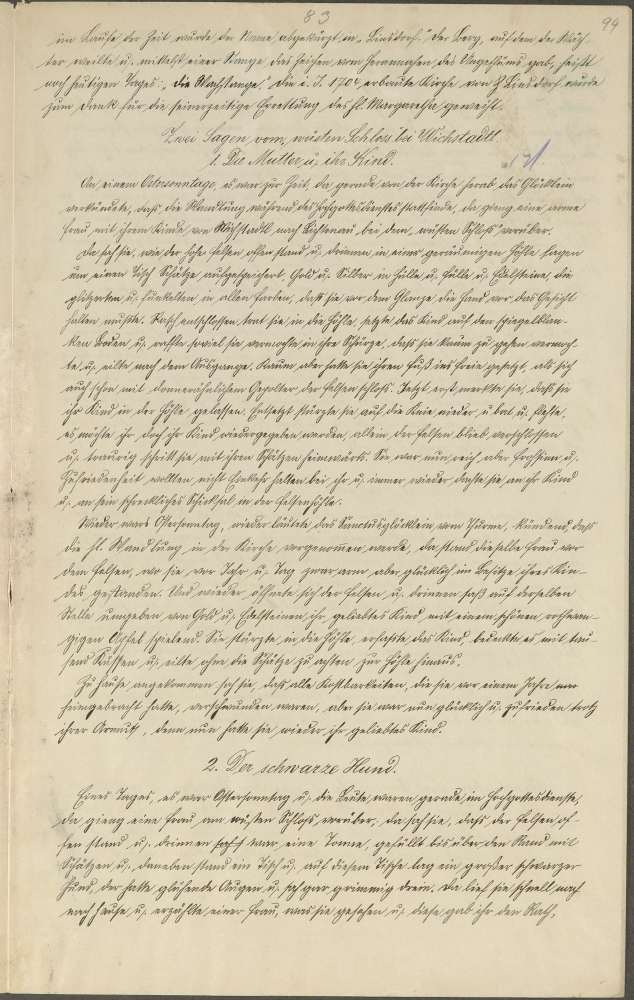 83
99
im Laufe der Zeit wurde der Name abgekürzt in „Linsdorf“. Der Berg, auf dem der Wäch-
ter weilte u. mittelst einer Stange das Zeichen vom Herannahen des Ungetüms gab, heißt
noch heutigen Tages „die Wachstange“. Die i. J. 1704 erbaute Kirche von Linsdorf wurde
zum Dank für die seinerzeitige Errettung der hl. Margaretha geweiht.
Zwei Sagen vom wüsten Schloss bei Wichstadtl.
1. Die Mutter u. ihr Kind.
An einem Ostersonntage, es war zur Zeit, da gerade von der Kirche herab das Glöcklein
verkündete, daß die Wandlung während des Hochgottesdienstes stattfinde, da gieng eine arme
Frau mit ihrem Kinde von Wichstadtl nach Lichtenau bei dem „wüsten Schloß“ vorüber.
Da sah sie, wie der hohe Felsen offen stand u. drinnen in einer geräumigen Höhle lagen
um einen Tisch Schätze aufgespeichert, Gold u. Silber in Hülle u. Fülle u. Edelsteine, die
glitzerten u. funkelten in allen Farben, daß sie vor dem Glanze die Hand vor das Gesicht
halten mußte. Rasch entschlossen trat sie in die Höhle, setzte das Kind auf den spiegelblan-
ken Boden u. raffte soviel sie vermochte in ihre Schürze, daß sie kaum zu gehen vermoch-
te u. eilte nach dem Ausgange. Kaum aber hatte sie ihren Fuß ins Freie gesetzt, als sich
auch schon mit donnerähnlichem Gepolter der Felsen schloß. Jetzt erst merkte sie, daß sie
ihr Kind in der Höhle gelassen. Entsetzt stürzte sie auf die Knie nieder u. bat u. flehte,
es möchte ihr doch ihr Kind wiedergegeben werden, allein der Felsen blieb verschlossen
u. traurig schritt sie mit ihren Schätzen heimwärts. Sie war nun reich aber Frohsinn u.
Zufriedenheit wollten nicht Einkehr halten bei ihr u. immer wieder dachte sie an ihr Kind
u. an sein schreckliches Schicksal in der Felsenhöhle.
Wieder wars Ostersonntag, wieder läutete das Sanctusglöcklein vom Turme, kündend, daß
die hl. Wandlung in der Kirche vorgenommen werde, da stand dieselbe Frau vor
dem Felsen, wo sie vor Jahr u. Tag zwar arm aber glücklich im Besitze ihres Kin-
des gestanden. Und wieder öffnete sich der Felsen u. drinnen saß auf derselben
Stelle umgeben von Gold u. Edelsteinen ihr geliebtes Kind mit einem schönen rothwan-
gigen Apfel spielend. Sie stürzte in die Höhle, erfaßte das Kind, bedeckte es mit tau-
send Küssen u. eilte ohne die Schätze zu achten zur Höhle hinaus.
Zu Hause angekommen sah sie, daß alle Kostbarkeiten, die sie vor einem Jahre
heimgebracht hatte, verschwunden waren, aber sie war nun glücklich u. zufrieden trotz
ihrer Armuth, denn nun hatte sie wieder ihr geliebtes Kind.
2. Der schwarze Hund.
Eines Tages, es war Ostersonntag u. die Leute waren gerade im Hochgottesdienste,
da gieng eine Frau am wüsten Schloß vorüber. Da sah sie, daß der Felsen of-
fen stand u. drinnen war eine Tonne, gefüllt bis über den Rand mit
Schätzen u. daneben stand ein Tisch u. auf diesem Tische lag ein großer schwarzer
Hund, der hatte glühende Augen u. sah gar grimmig drein. Da lief sie schnell nach
nach Hause u. erzählte einer Frau, was sie gesehen u. diese gab ihr den Rath,